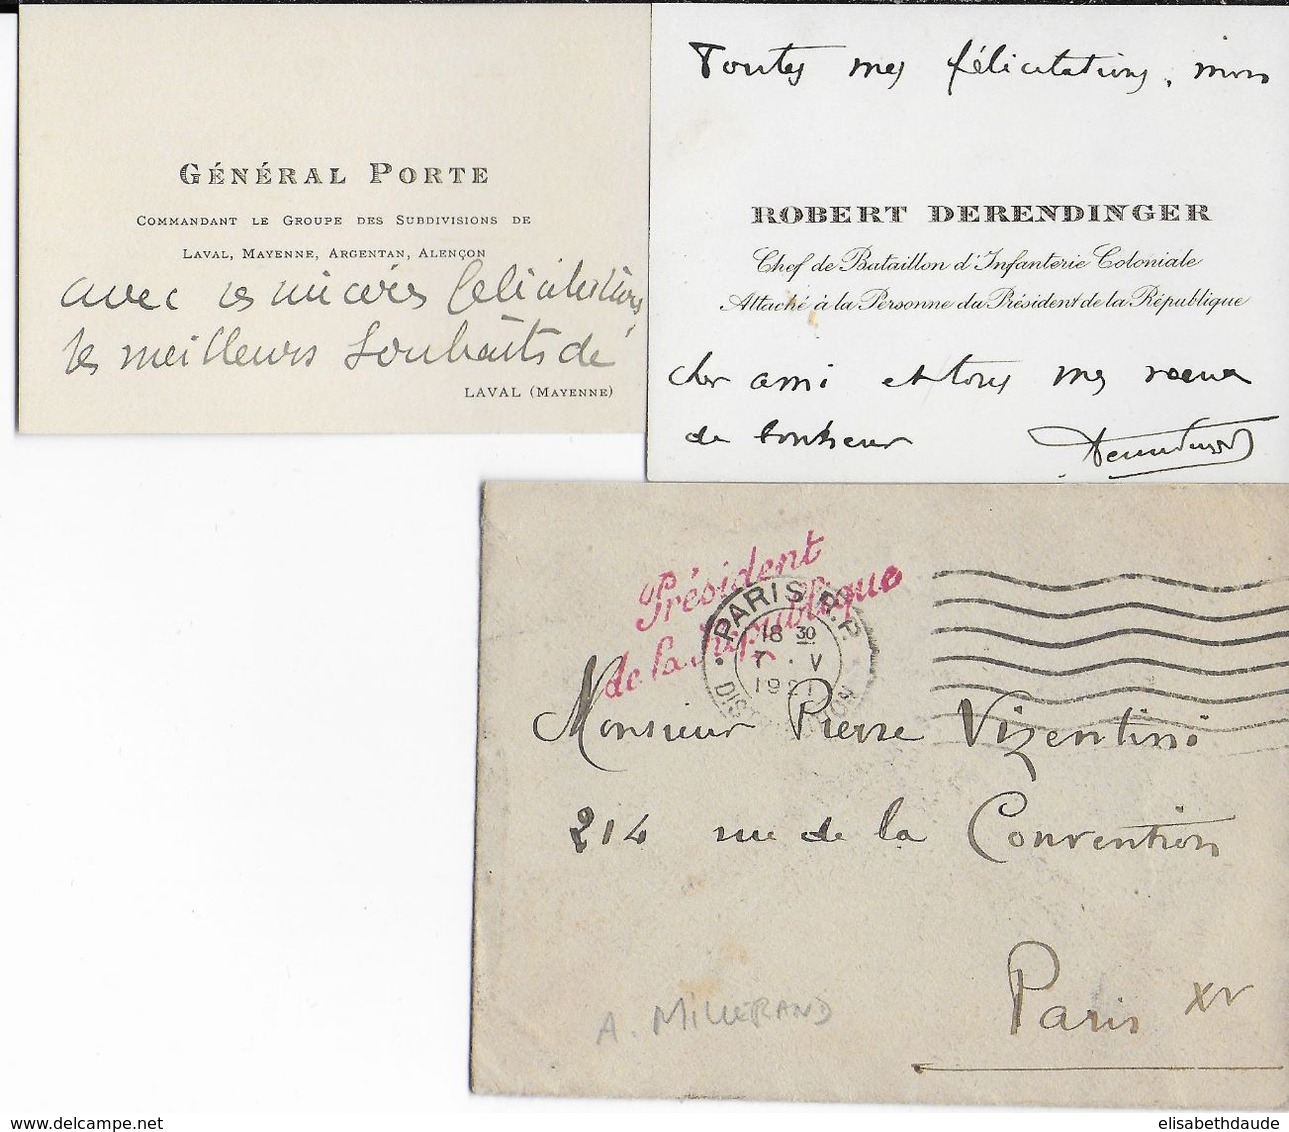 GÉNÉRAL PORTE
COMMANDANT LE GROUPE DES SUBDIVISIONS DE
LAVAL, MAYENNE, ARGENTAN, ALENÇON
avec ses sincères félicitations,
les meilleurs souhaits de
LAVAL (MAYENNE)
Toutes mes félicitations, mon
ROBERT DERENDINGER
Chef de Bataillon d'Infanterie Coloniale
Attaché à la Personne du Président de la République
cher ami et tous mes vœux
de bonheur Derendinger
Président
de la République
PARIS R.P.
18 30
7 · V
1921
DISTRIBUTION
Monsieur Pierre Vizentini
214 rue de la Convention
Paris XV
A. MILLERAND
delcampe.net
elisabethdaude